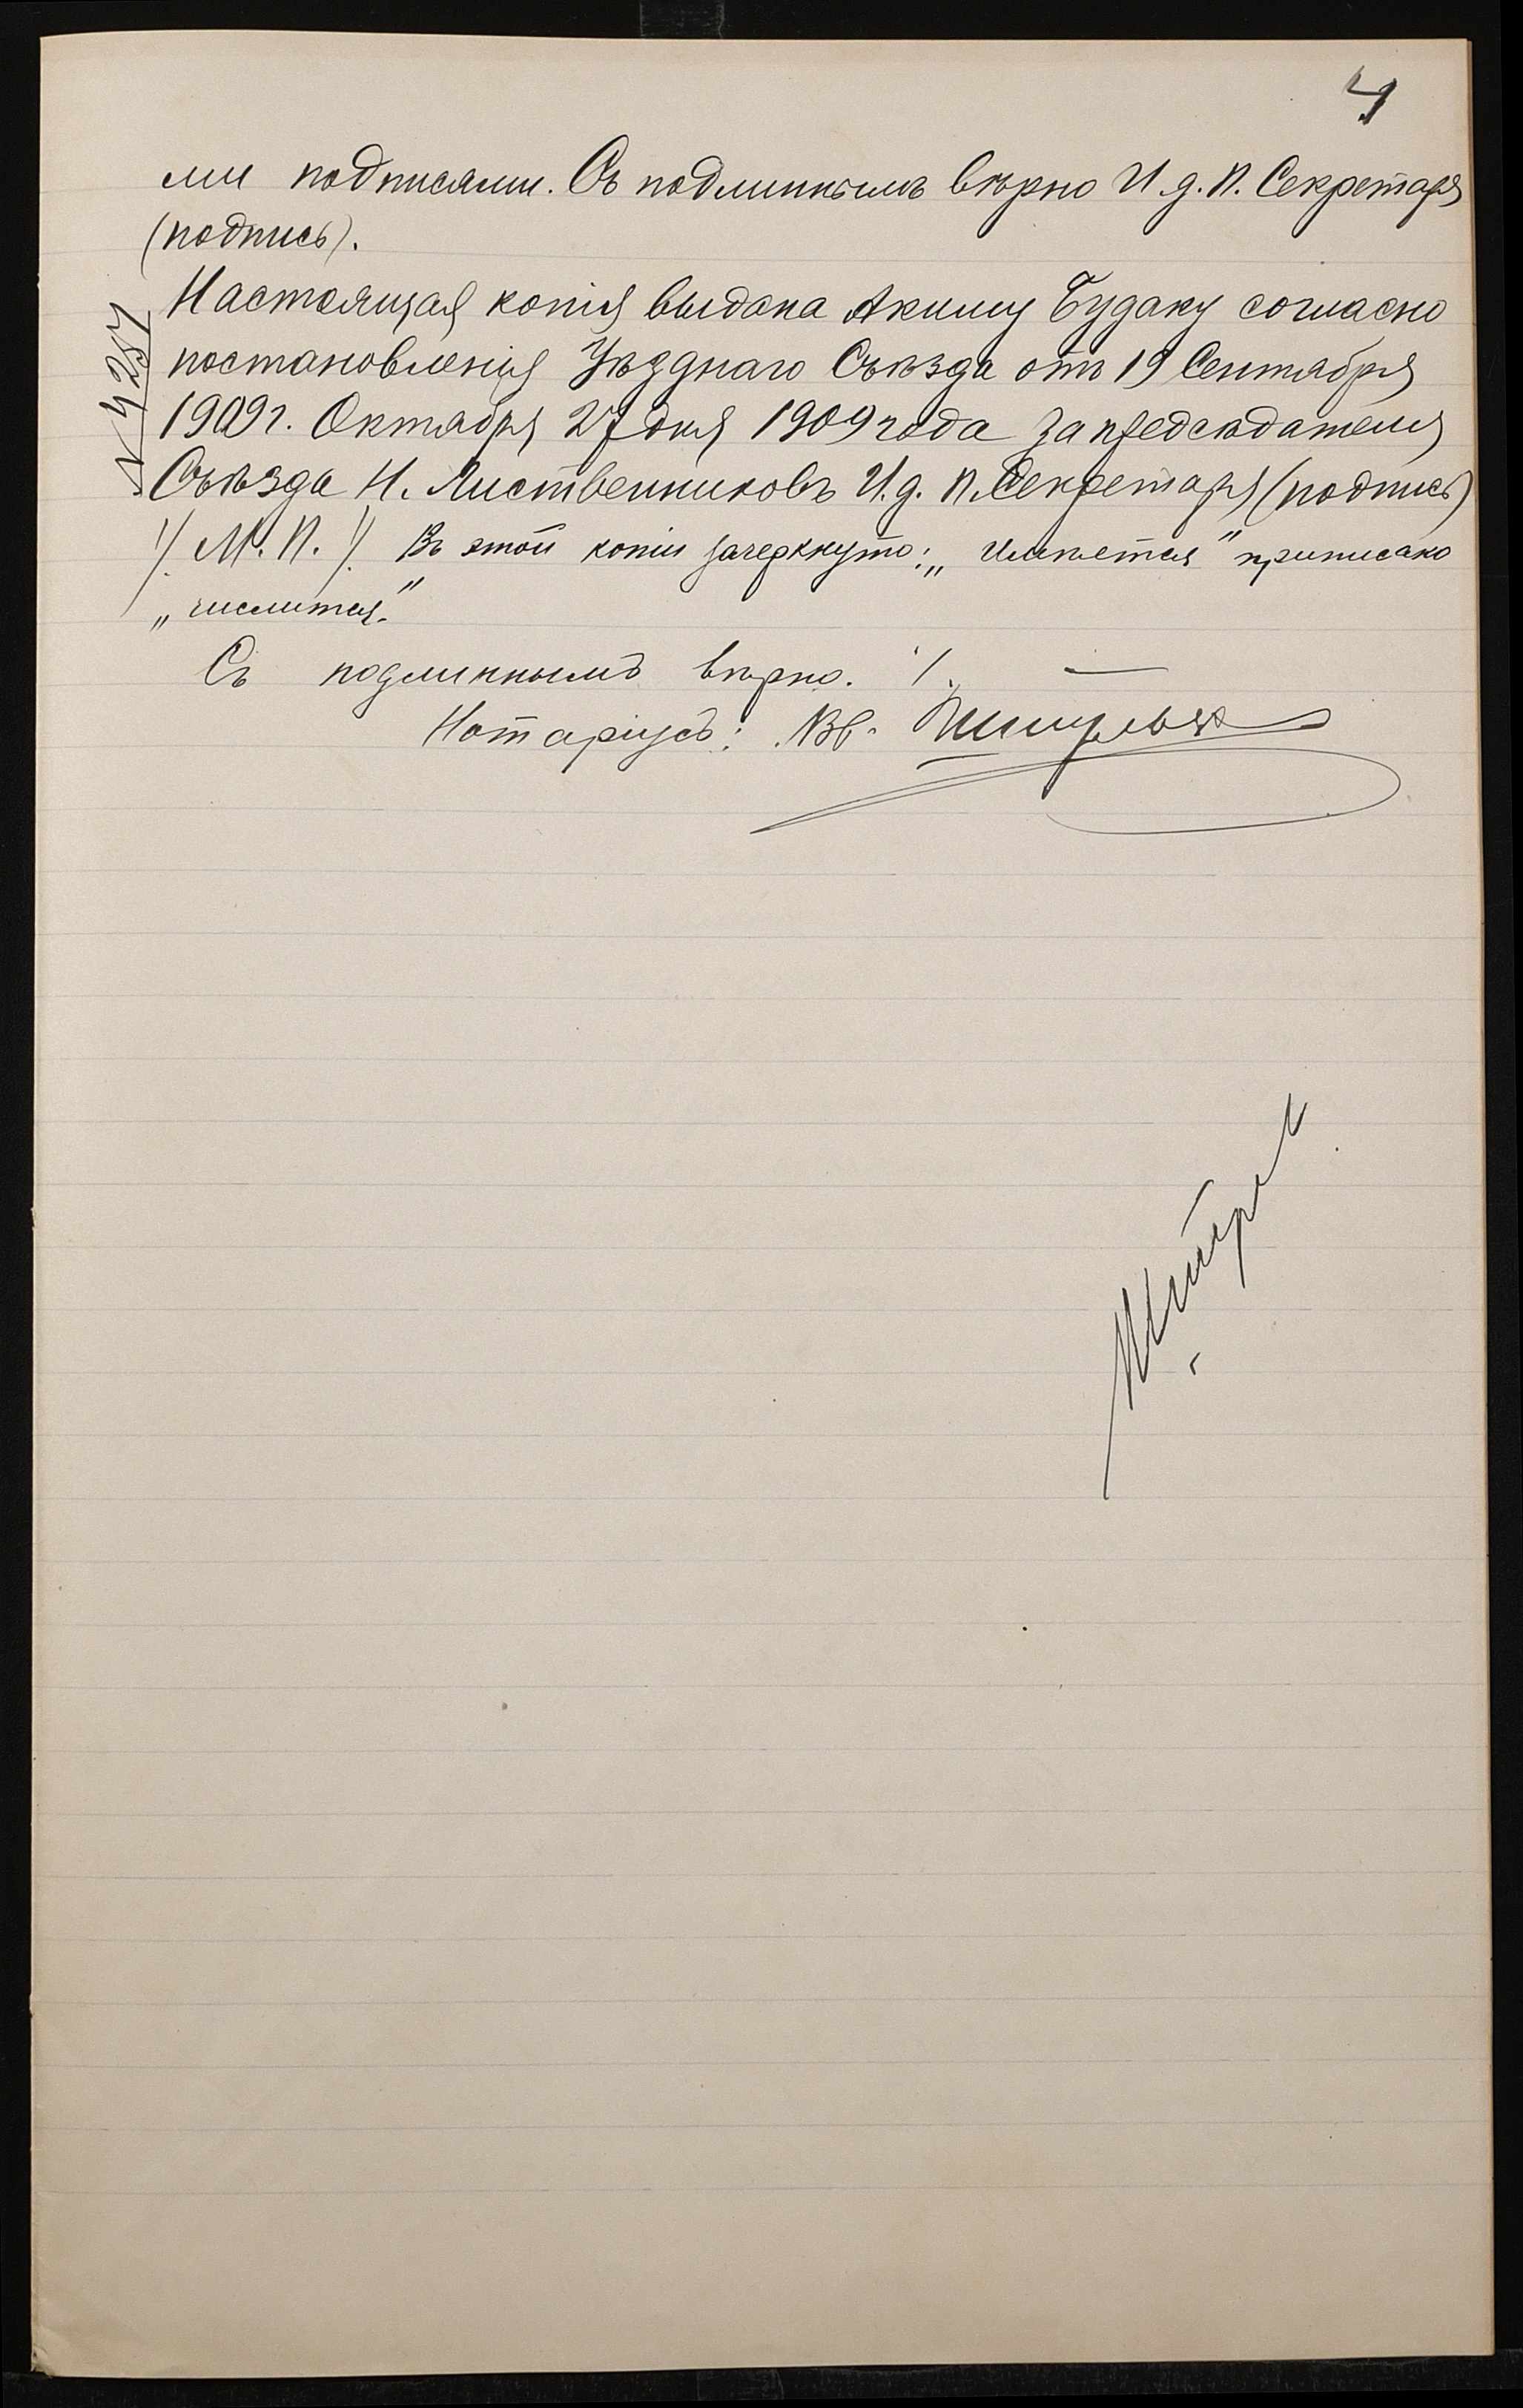 4
ми подписями. Съ подлиннымъ вѣрно И. д. п. Секретаря
(подпись).
Настоящая копія выдана Акиму Будаку согласно
постановленія Уѣзднаго Съѣзда отъ 19 Сентября
1909 г. Октября 27 дня 1909 года За предсѣдателя
Съѣзда Н. Лиственниковъ И. д. п. Секретаря (подпись)
/ М. П. / Въ этой копіи зачеркнуто: „имѣется" приписано
„числится."
Съ подлиннымъ вѣрно.
Нотаріусъ:
N 4257